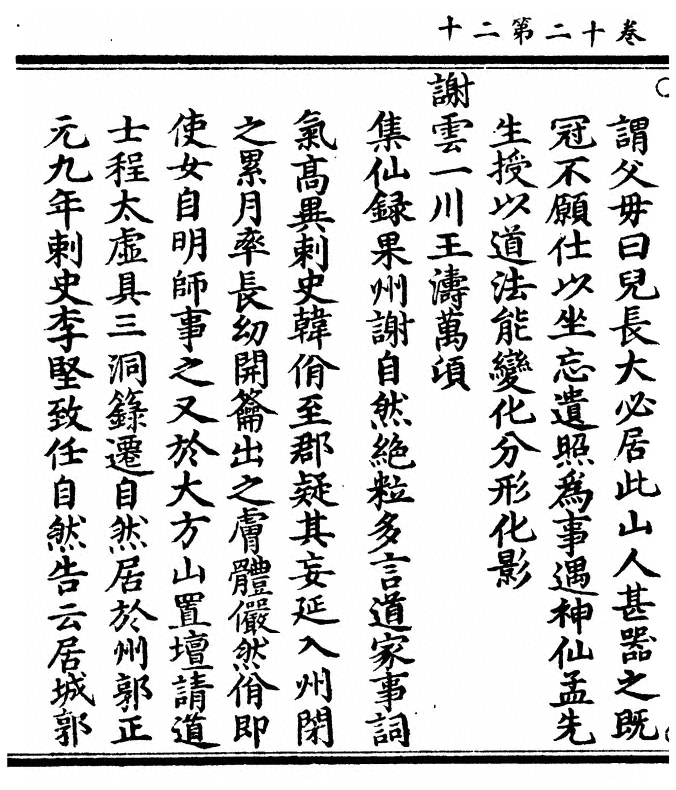 卷十二第二十
謂父毋曰兒長大必居此山人甚器之既
冠不願仕以坐忘遺照爲事遇神仙孟先
生授以道法能變化分形化影
謝雲一川王濤萬頃
集仙録果州謝自然絶粒多言道家事詞
氣髙異刺史韓佾至郡疑其妄延入州閉
之累月率長幼開籥出之膚體儼然佾即
使女自明師事之又於大方山置壇請道
士程太虛具三洞籙遷自然居於州郭正
元九年刺史李堅致任自然告云居城郭